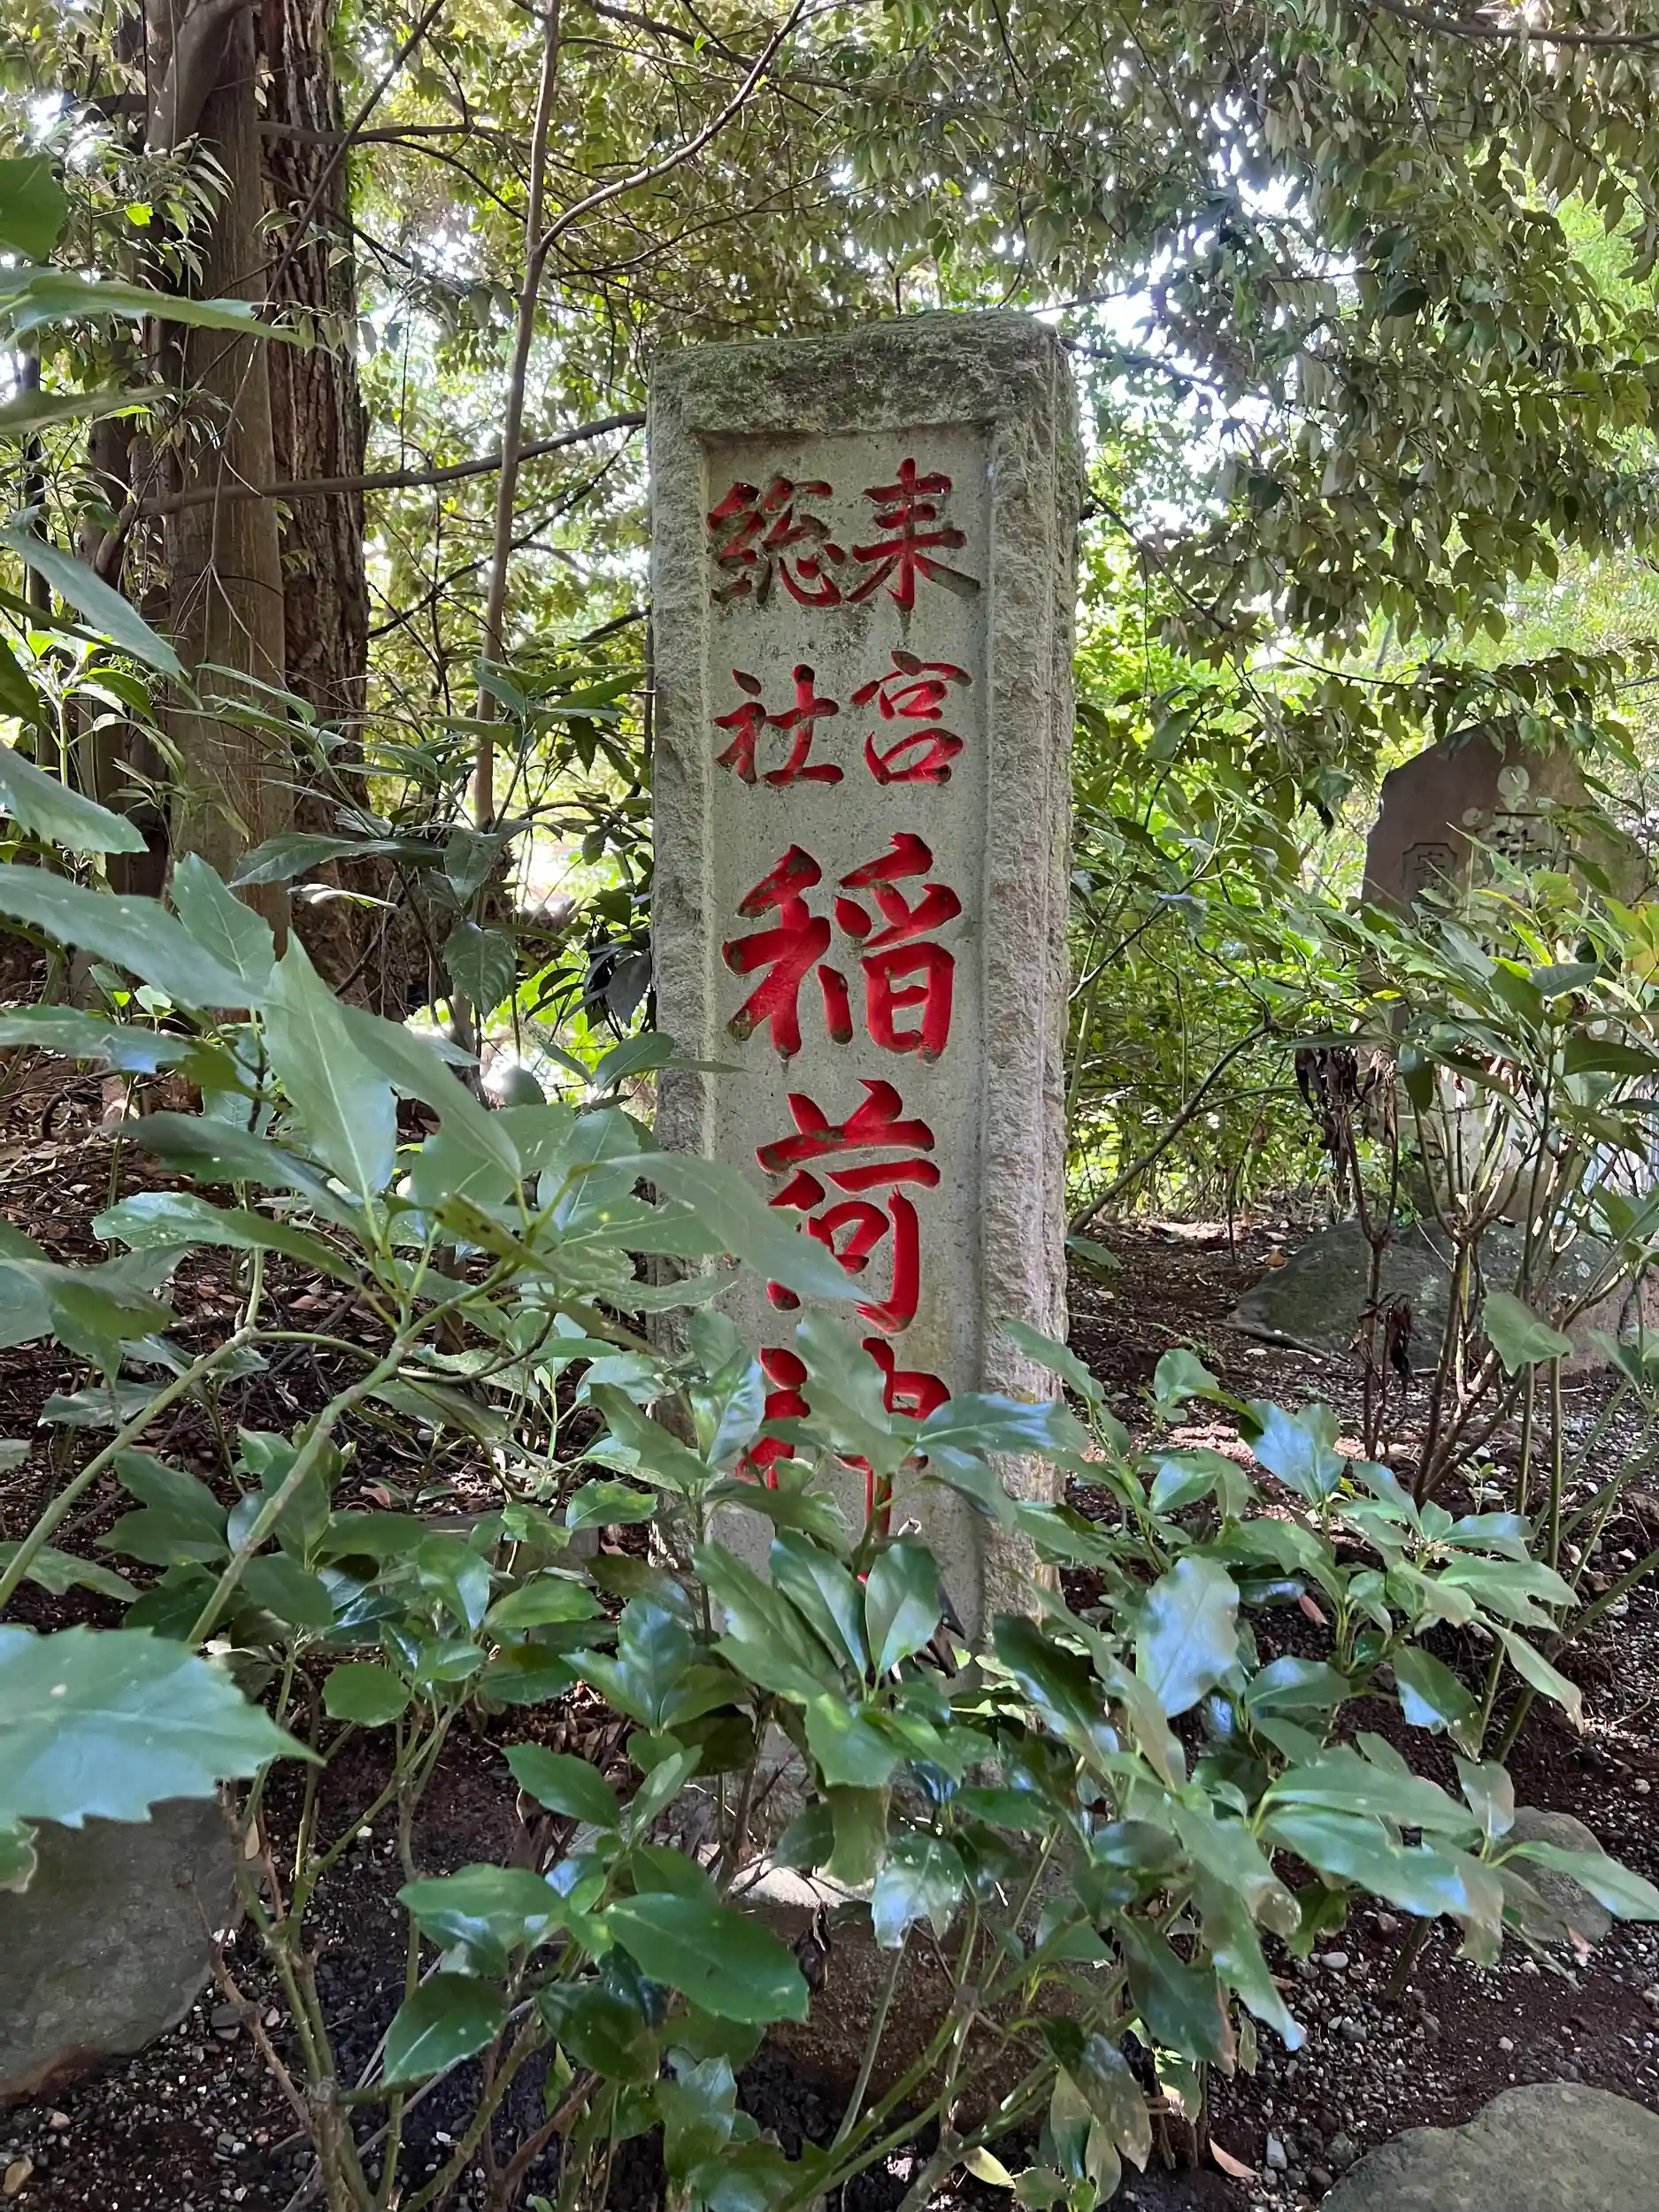 来宮
総社
稲荷神